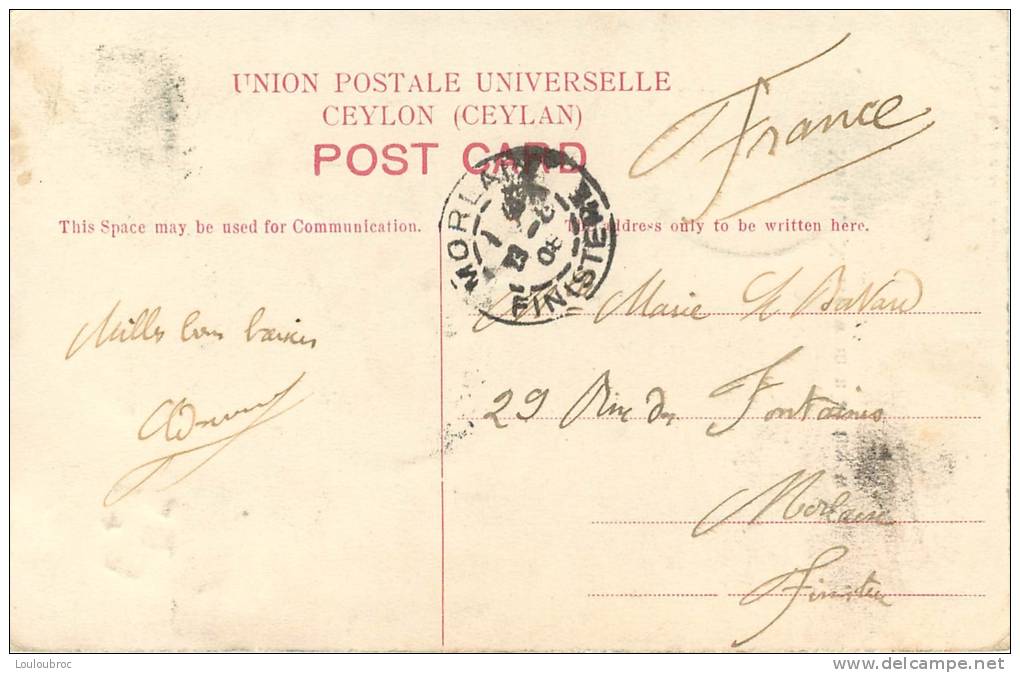 UNION POSTALE UNIVERSELLE
CEYLON (CEYLAN)
POST CARD
France
This Space may be used for Communication.
The Address only to be written here.
MORLAIX
FINISTERE
08
Marie
Mille bons baisers
29 Rue des Fontaines
Morlaix
Finistère
Louloubroc
www.delcampe.net